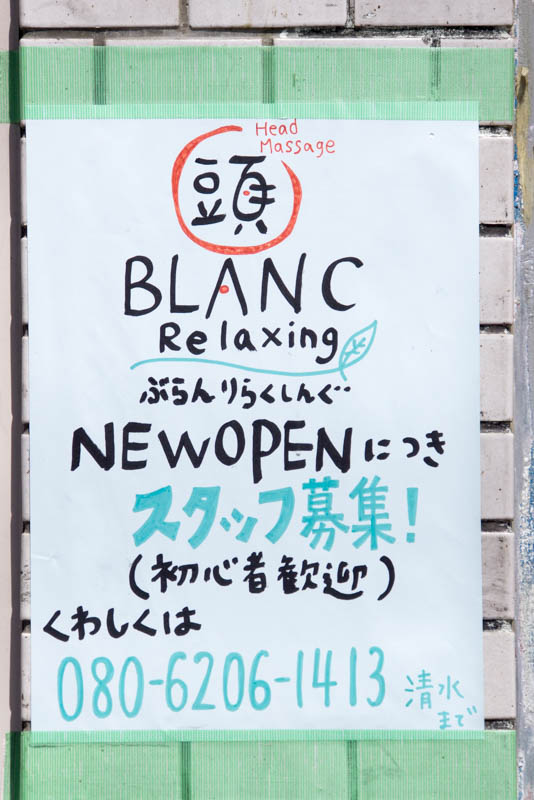 Head
Massage
頭
BLANC
Relaxing
ぶらんりらくしんぐ
NEWOPENにつき
スタッフ募集!
(初心者歓迎)
くわしくは
080-6206-1413 清水
まで